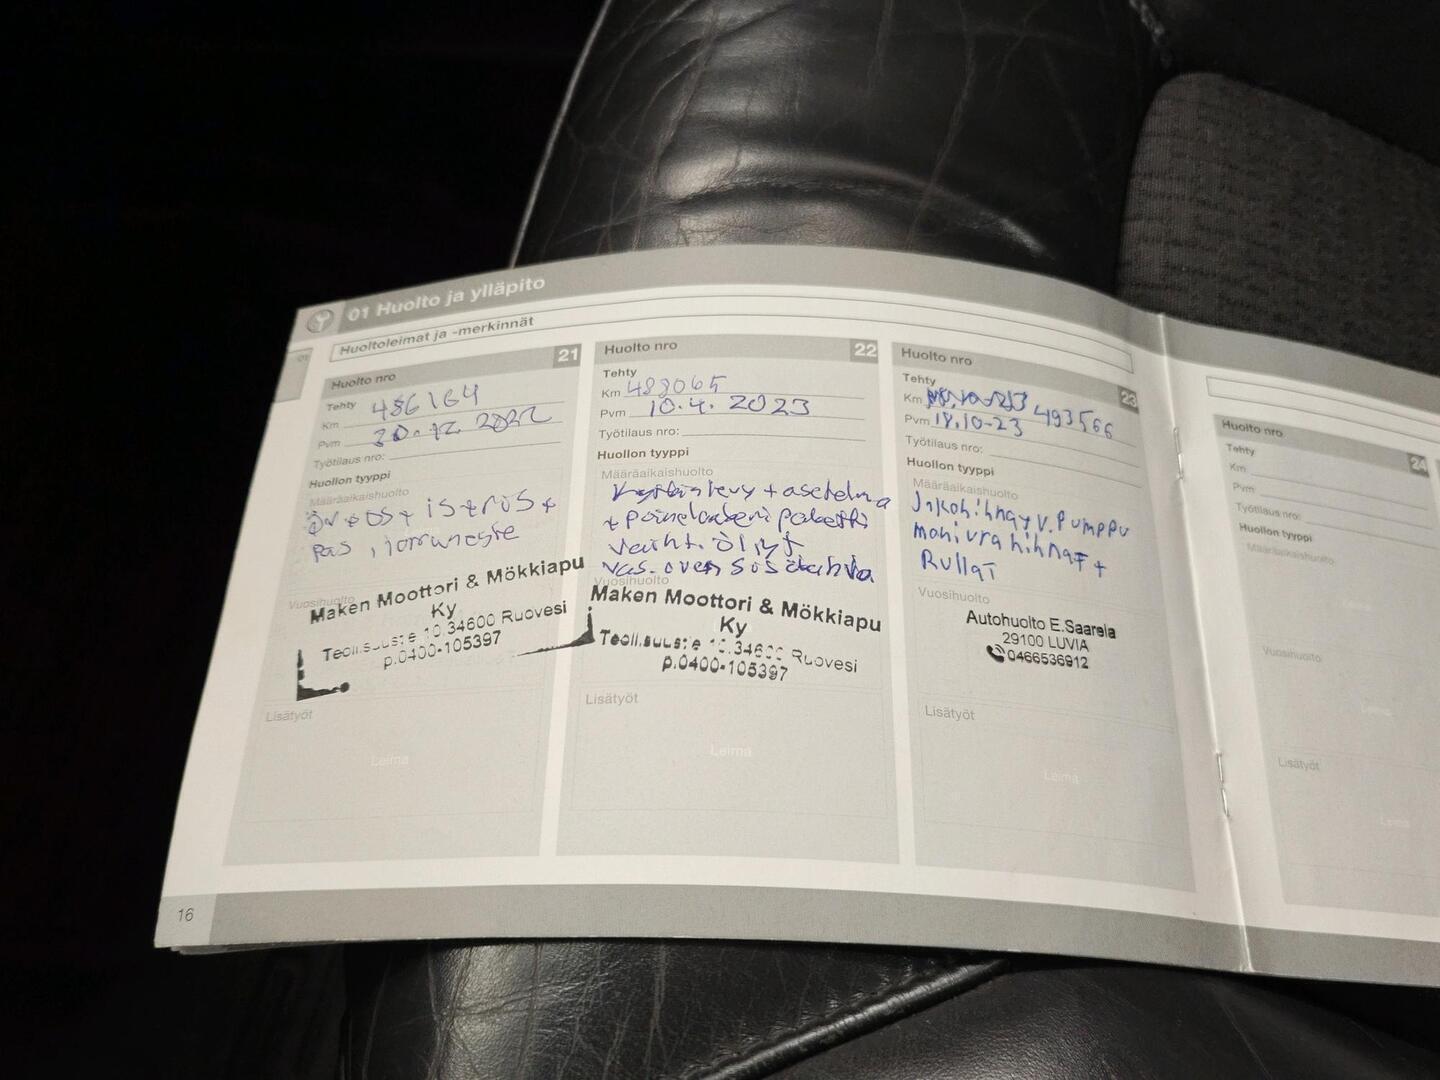 01 Huolto ja ylläpito
01
Huoltoleimat ja -merkinnät
Huolto nro 21
Tehty
Km 486164
Pvm 20.12.2022
Työtilaus nro:
Huollon tyyppi
Määräaikaishuolto
+ ös + is + rös +
pas, jarruneste
Vuosihuolto
Maken Moottori & Mökkiapu
Ky
Teoll.suust:e 10.34600 Ruovesi
p.0400-105397
Lisätyöt
Leima
Huolto nro 22
Tehty
Km 489065
Pvm 10.4.2023
Työtilaus nro:
Huollon tyyppi
Määräaikaishuolto
Kytkinlevy + asetelma
+ painelaakeri paketti
Vaiht. öljyt
vas. oven sisäkahva
Vuosihuolto
Maken Moottori & Mökkiapu
Ky
Teoll.suust:e 10.34600 Ruovesi
p.0400-105397
Lisätyöt
Leima
Huolto nro 23
Tehty
Km 493566
Pvm 18.10-23
Työtilaus nro:
Huollon tyyppi
Määräaikaishuolto
Jakohihna + V.Pumppu
moniurahihnat +
Rullat
Vuosihuolto
Autohuolto E.Saarela
29100 LUVIA
0466536912
Lisätyöt
Leima
16
Huolto nro 24
Tehty
Km
Pvm
Työtilaus nro:
Huollon tyyppi
Määräaikaishuolto
Leima
Vuosihuolto
Leima
Lisätyöt
Leima